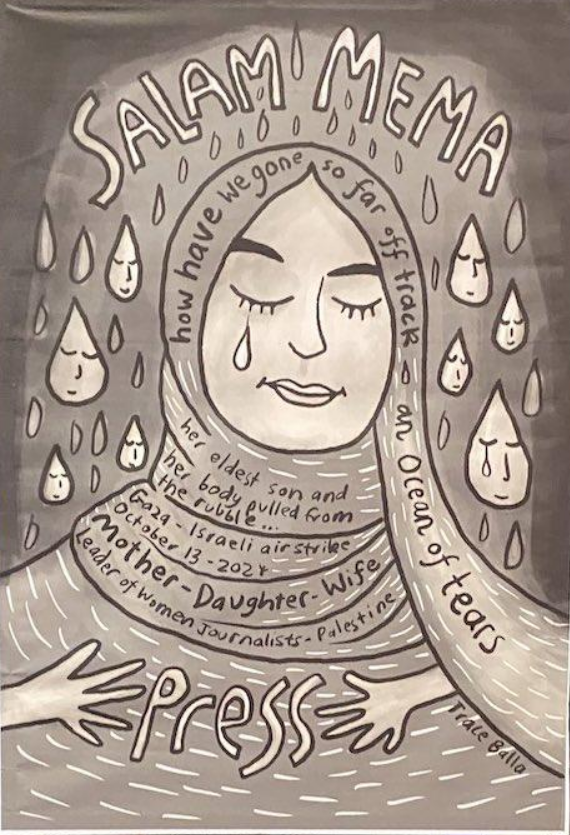 SALAM MEMA
how have we gone so far off track
an Ocean of tears
her eldest son and
her body pulled from
the rubble...
Gaza - Israeli airstrike
October 13 - 2024
Mother - Daughter - Wife
Leader of Women Journalists - Palestine
Press
Trace Balla